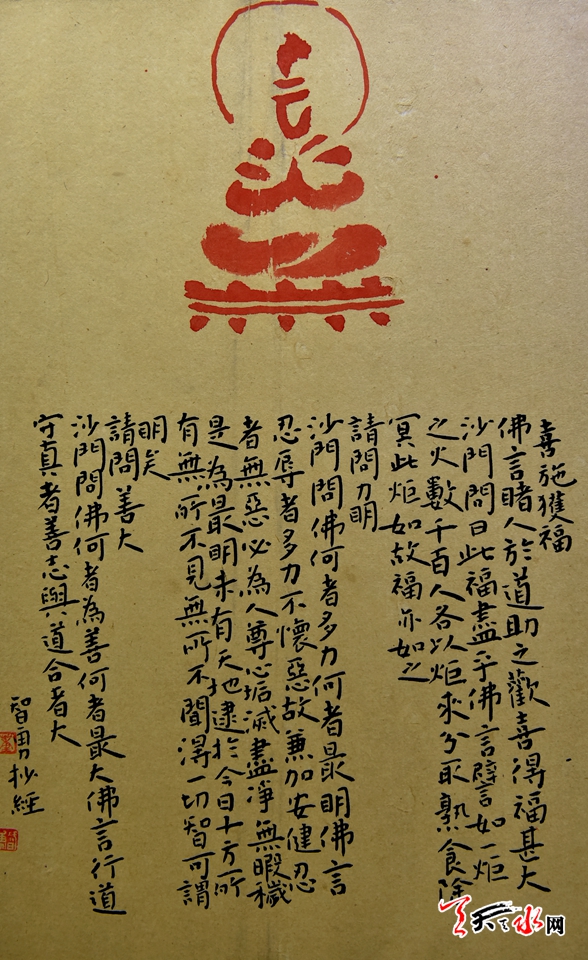 喜施獲福
佛言睹人於道助之歡喜得福甚大
沙門問曰此福盡乎佛言譬如一炬
之火數千百人各以炬求分取熟食除
冥此炬如故福亦如之
請問力明
沙門問佛何者多力何者最明佛言
忍辱者多力不懷惡故兼加安健忍
者無惡必為人尊心垢滅盡淨無暇穢
是為最明未有天地逮於今日十方所
有無所不見無所不聞得一切智可謂
明矣
請問善大
沙門問佛何者為善何者最大佛言行道
守真者善志與道合者大
智勇抄經
天天水网